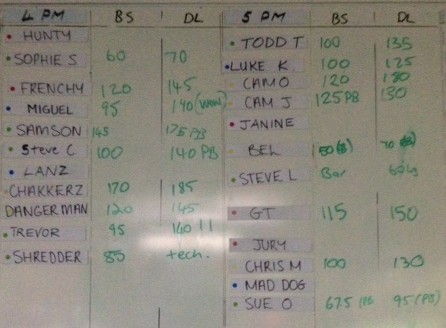 4 PM BS DL
HUNTY
SOPHIE S 60 70
FRENCHY 120 145
MIGUEL 95 140
SAMSON 145 175 PB
Steve C 100 140 PB
LANZ
CHAKKERZ 170 185
DANGERMAN 120 145
TREVOR 95 140 !!
SHREDDER 85 tech.
5 PM BS DL
TODD T 100 135
LUKE K. 100 125
CAM O 120 180
CAM J 125 PB 130
JANINE
BEL 70
STEVE L Bar
GT 115 150
JURY
CHRIS M 100 130
MAD DOG
SUE O 67.5 95 (PB)